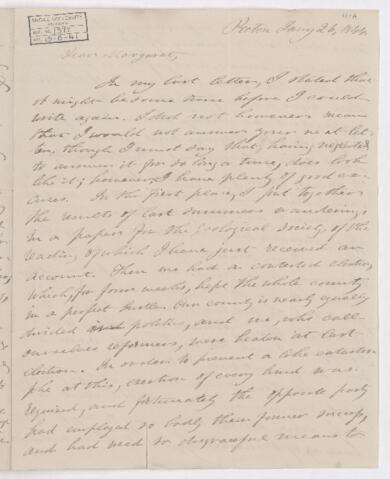 McGILL UNIVERSITY
ACC. NO. 1377
Pictou Jany 26, 1844
Dear Margaret,
In my last letter, I stated that
it might be some time before I could
write again. I did not however mean
that I would not answer your next let-
ter, though I must say that, having neglected
to answer it for so long a time, does look
like it; however I have plenty of good ex-
cuses. In the first place, I put together
the results of last summers wanderings
in a paper for the Geological Society, of the
reading of which I have just received an
account. Then we had a contested election,
which, for four weeks, kept the whole county
in a perfect bustle. Our county is nearly equally
divided in politics, and we, who call
ourselves reformers, were beaten at last
election. In order to prevent a like catastro-
phe at this, exertion of every kind was
required, and fortunately the opposite party
had employed so badly their former success,
and had used so disgraceful means to